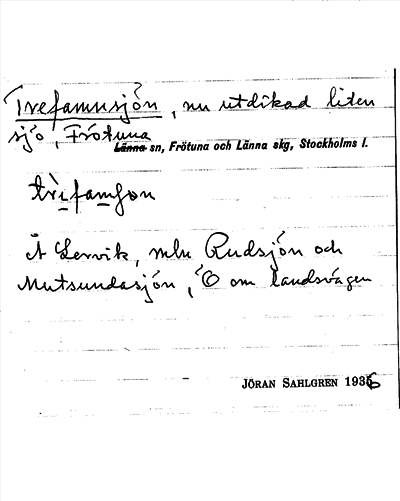 Trefamnsjön, nu utdikad liten
sjö, Frötuna
Länna sn, Frötuna och Länna skg, Stockholms l.
trifamʃon
Å Lervik, mln Rudsjön och
Mutsundasjön, Ö om landsvägen
JÖRAN SAHLGREN 1936